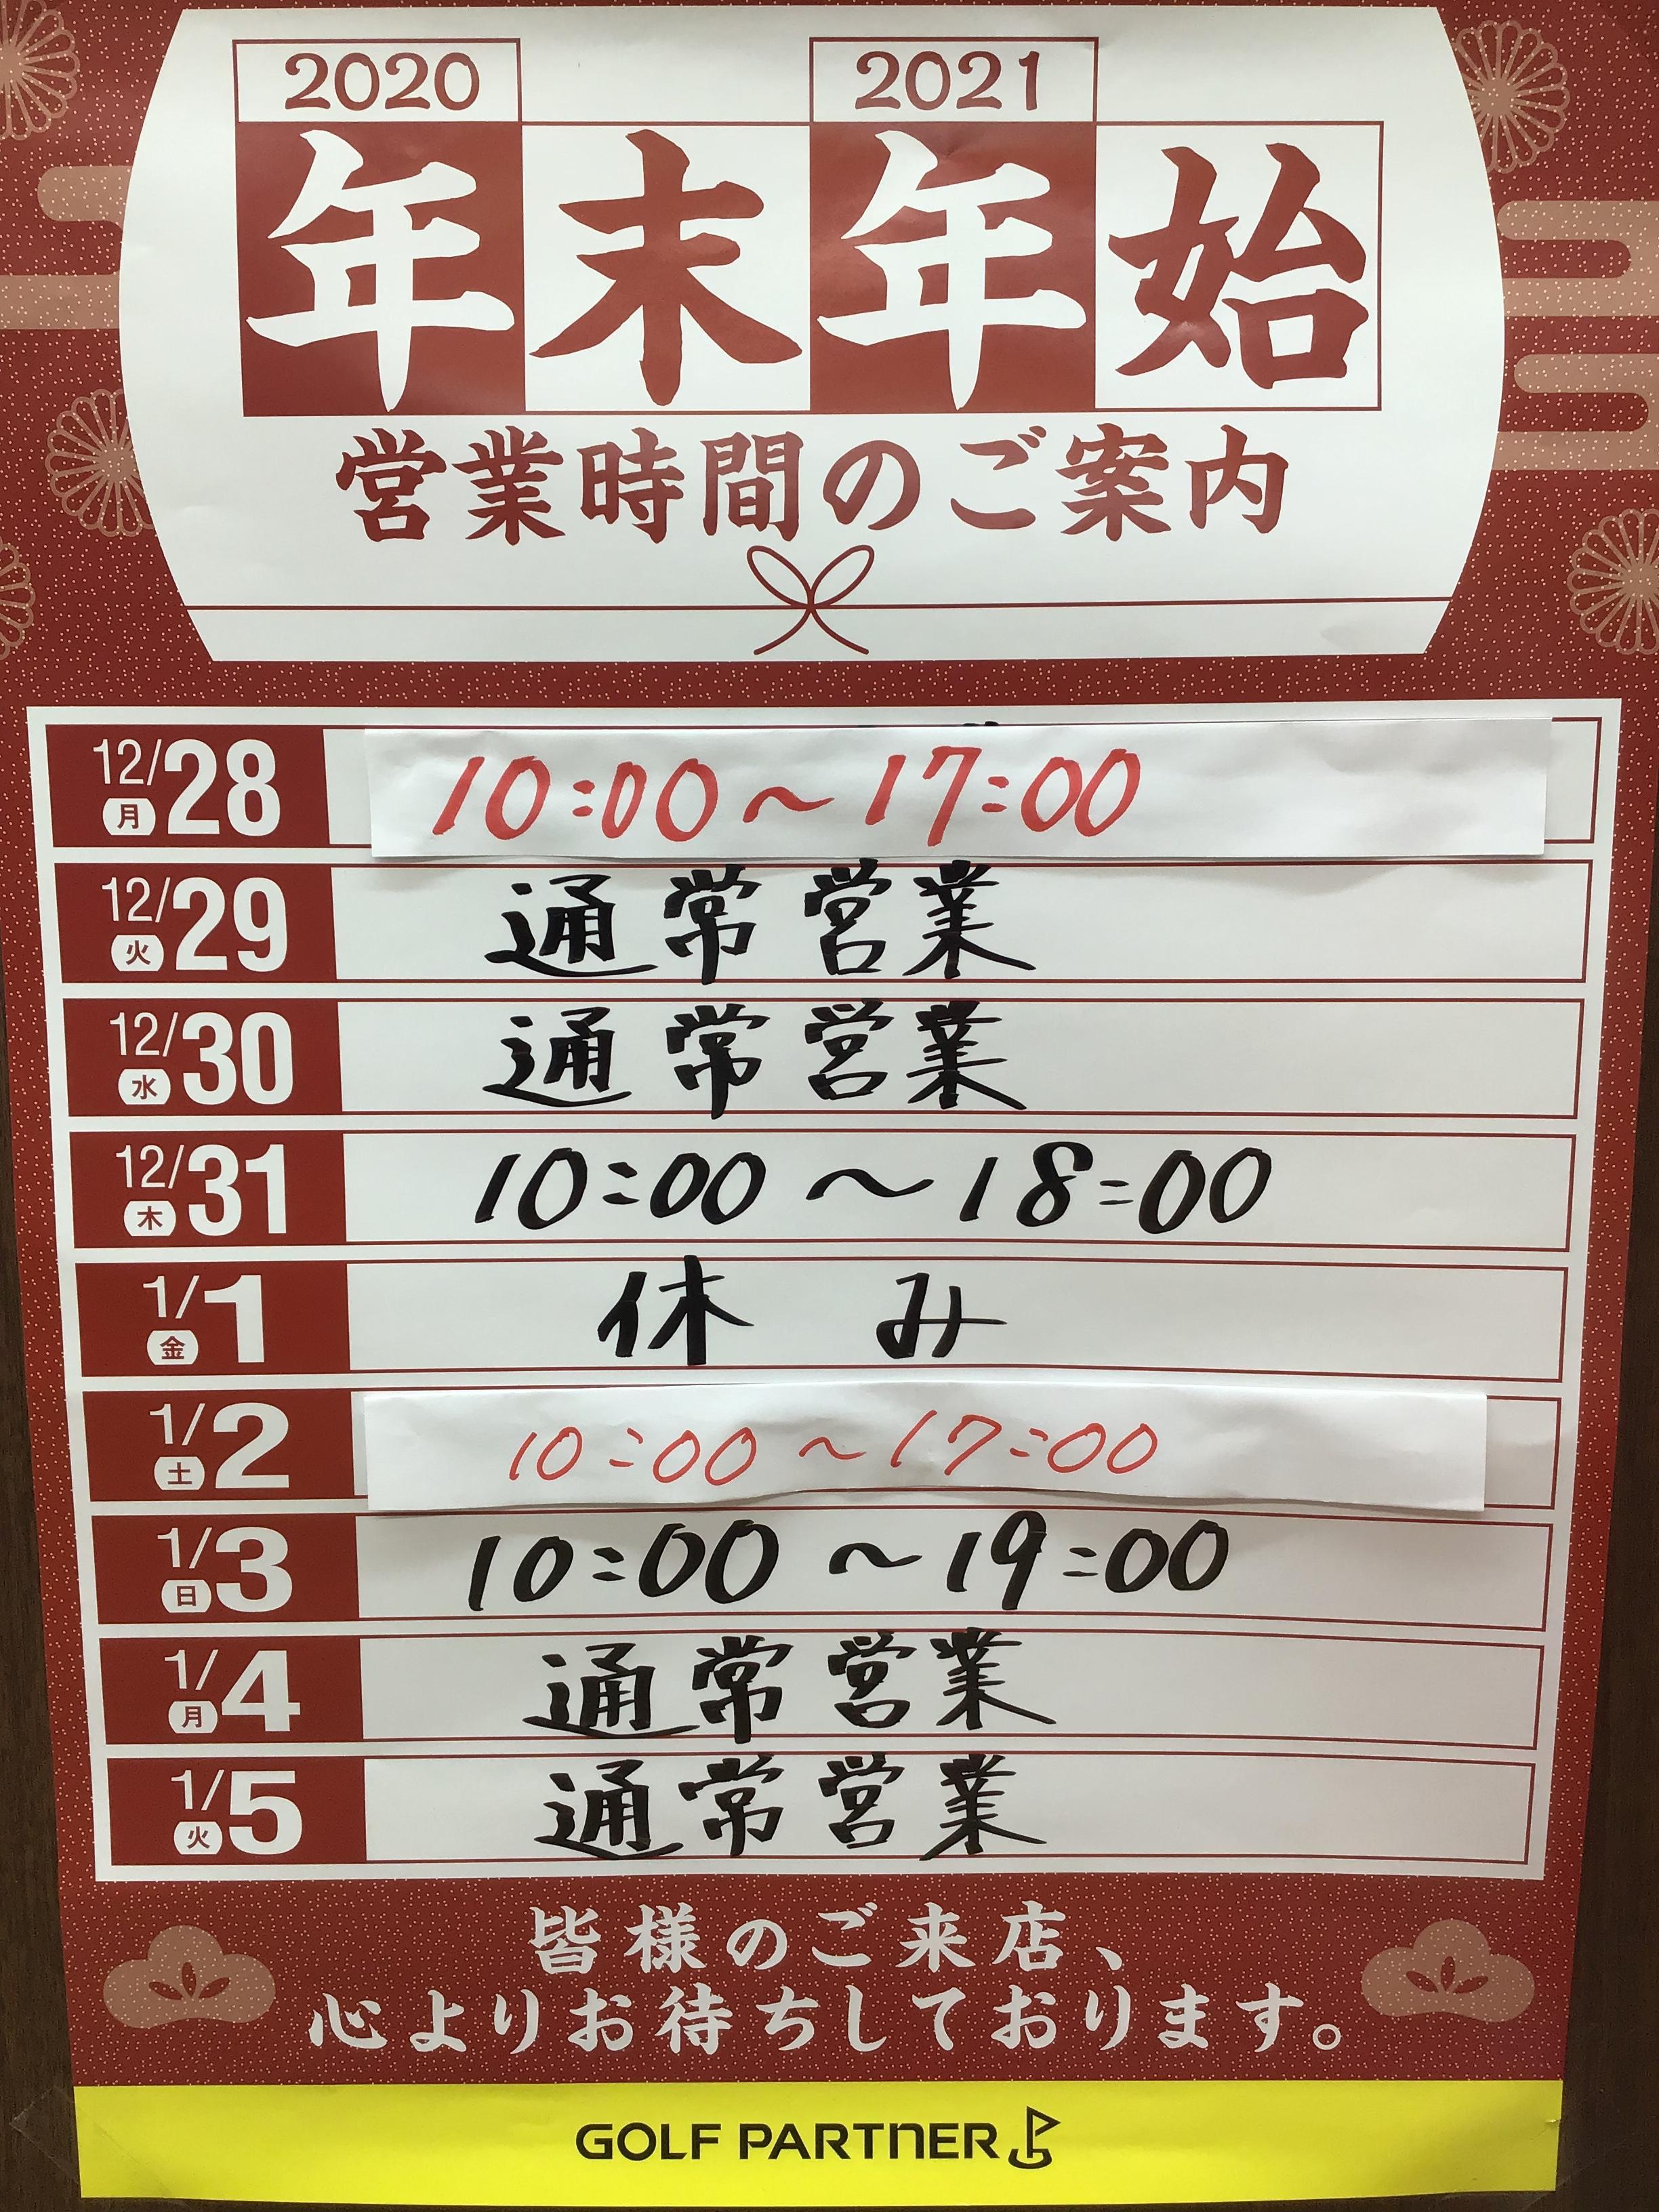 2020 2021
年末年始
営業時間のご案内
12/28 月 10:00～17:00
12/29 火 通常営業
12/30 水 通常営業
12/31 木 10:00～18:00
1/1 金 休み
1/2 土 10:00～17:00
1/3 日 10:00～19:00
1/4 月 通常営業
1/5 火 通常営業
皆様のご来店、
心よりお待ちしております。
GOLF PARTNER